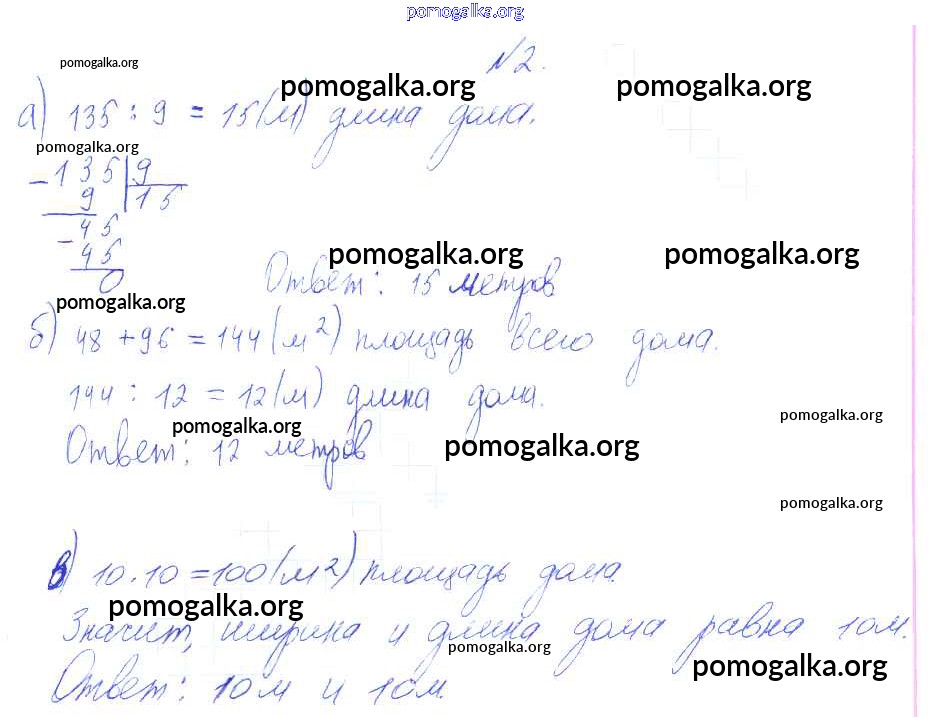 pomogalka.org
№2.
pomogalka.org
pomogalka.org pomogalka.org
а) 135 : 9 = 15(м) длина дома.
pomogalka.org
- 135 | 9
9 | 15
- 45
45
0
pomogalka.org pomogalka.org
Ответ: 15 метров
pomogalka.org
б) 48 + 96 = 144 (м²) площадь всего дома.
144 : 12 = 12(м) длина дома.
pomogalka.org
pomogalka.org
Ответ: 12 метров
pomogalka.org
pomogalka.org
в) 10 . 10 = 100(м²) площадь дома
pomogalka.org
Значит, ширина и длина дома равна 10м.
pomogalka.org
pomogalka.org
Ответ: 10м и 10м.